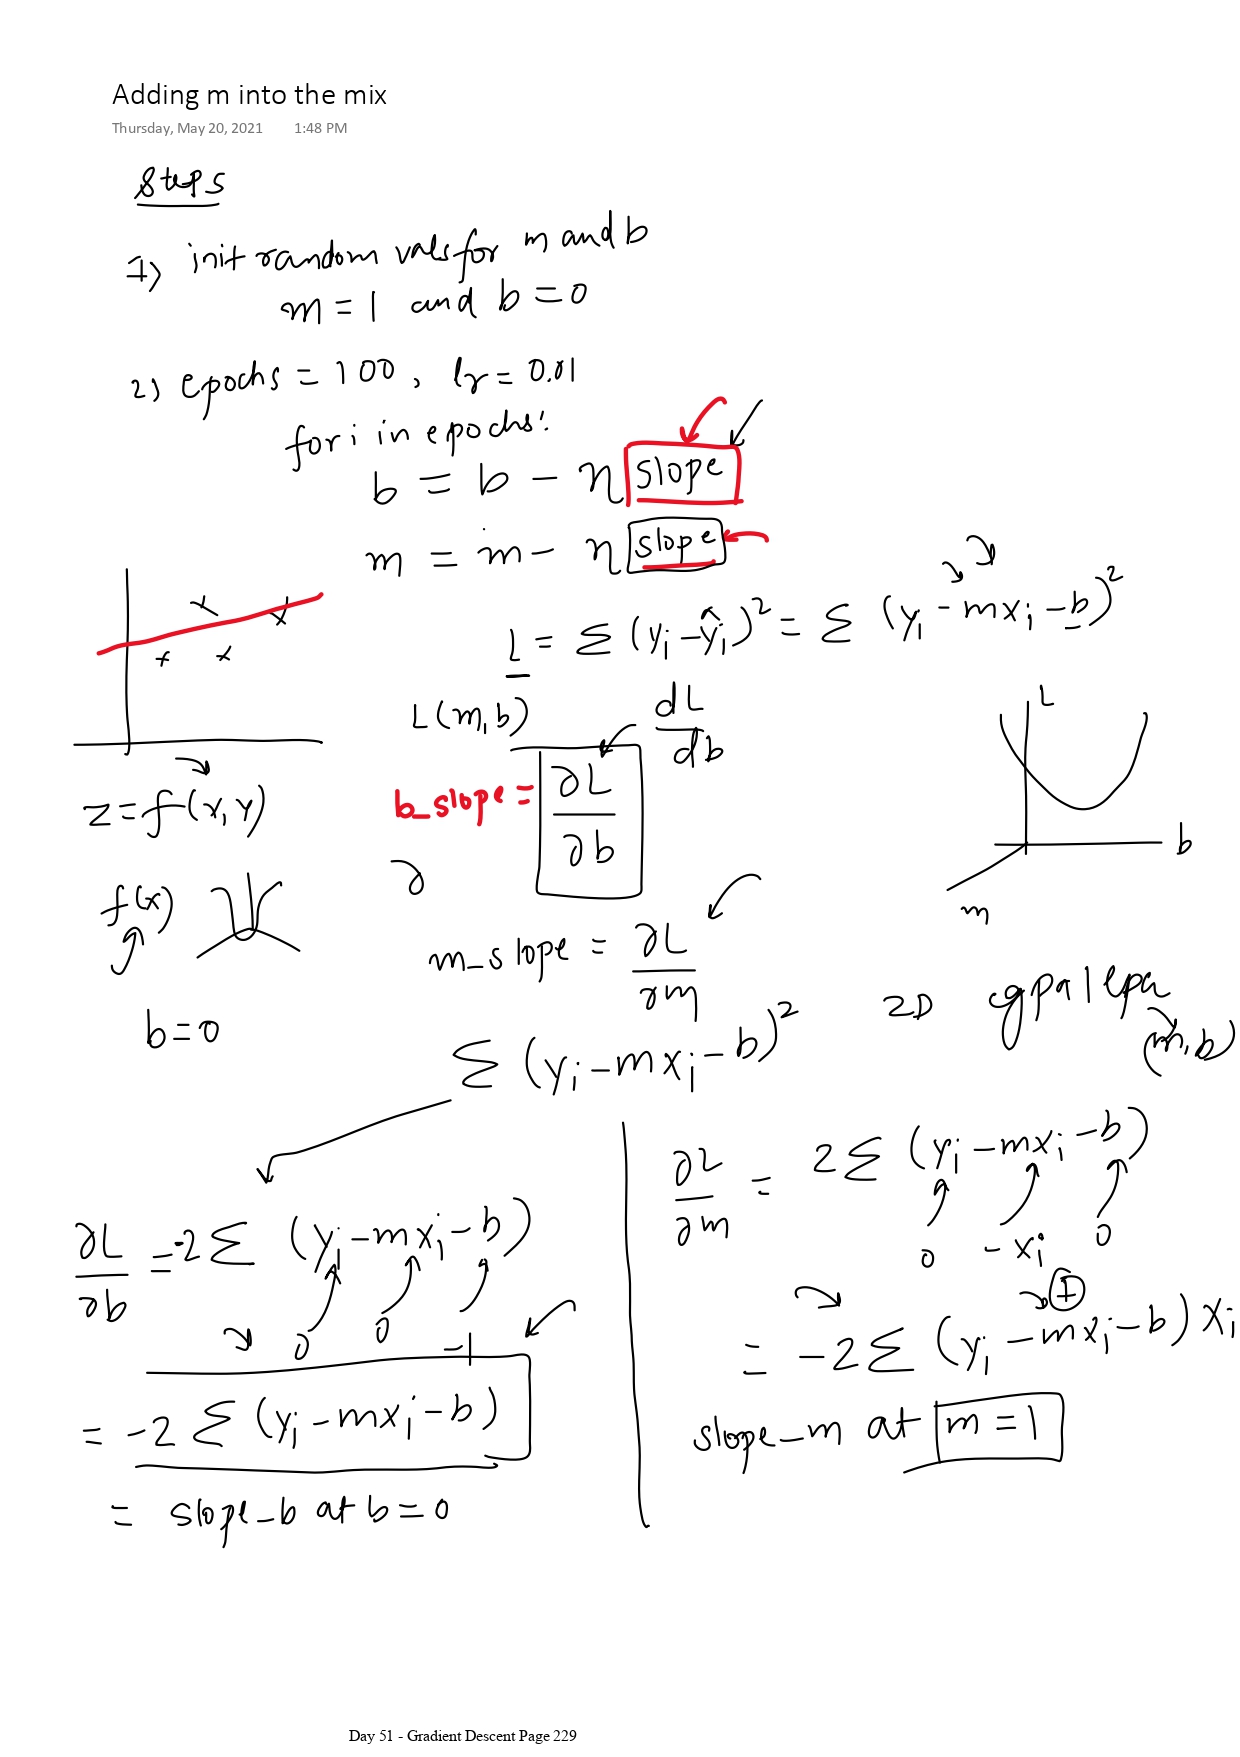 Adding m into the mix
Thursday, May 20, 2021 1:48 PM
Steps
1) init random vals for m and b
m = 1 and b = 0
2) epochs = 100, lr = 0.01
for i in epochs:
b = b - η slope
m = m - η slope
L = Σ (yi - ŷi)² = Σ (yi - mxi - b)²
L(m, b)
dL
db
L
b
m
z = f(x, y)
b_slope = ∂L
∂b
∂
f(x)
m_slope = ∂L
∂m
b = 0
2D
(m, b)
Σ (yi - mxi - b)²
∂L/∂b = -2 Σ (yi - mxi - b)
0 0 -1
= -2 Σ (yi - mxi - b)
= slope_b at b = 0
∂L/∂m = 2 Σ (yi - mxi - b)
0 -xi 0
1
= -2 Σ (yi - mxi - b) xi
slope_m at m = 1
Day 51 - Gradient Descent Page 229